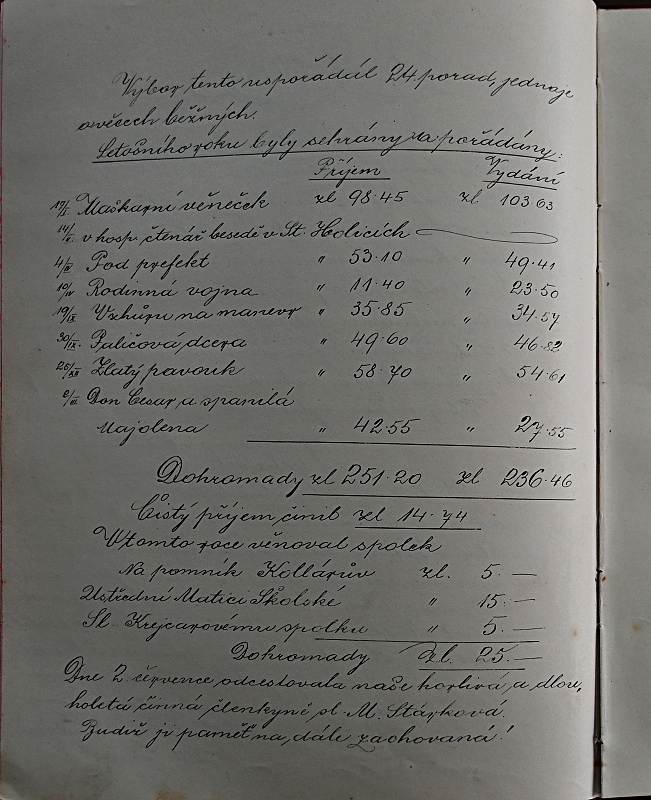 Výbor tento uspořádal 24. porad, jednaje
o věcech běžných.
Letošního roku byly sehrány a pořádány:
Příjem Vydání
19/I. Maškarní věneček zl 98·45 zl 103 63
14/II. v hosp. čtenář besedě v St. Holicích
4/III Pod prefekt " 53·10 " 49·41
10/IV Rodinná vojna " 11·40 " 23·50
19/IX Vzhůru na manevr " 35·85 " 34·57
30/IX. Paličová dcera " 49·60 " 46·82
26/XII Zlatý pavouk " 58·70 " 54·61
Don Cesar a spanilá
Majolena " 42·55 " 27·55
Dohromady zl 251·20 zl 236·46
Čistý příjem činil zl 14·74
V tomto roce věnoval spolek
Na pomník Kollárův zl. 5.—
Ústřední Matici Školské " 15.—
Sl. Krejcarovému spolku " 5.—
Dohromady Zl. 25.—
Dne 2. července odcestovala naše horlivá a dlou,
holetá činná členkyně sl. M. Stárková.
Budiž jí paměť na,dále zachovaná!